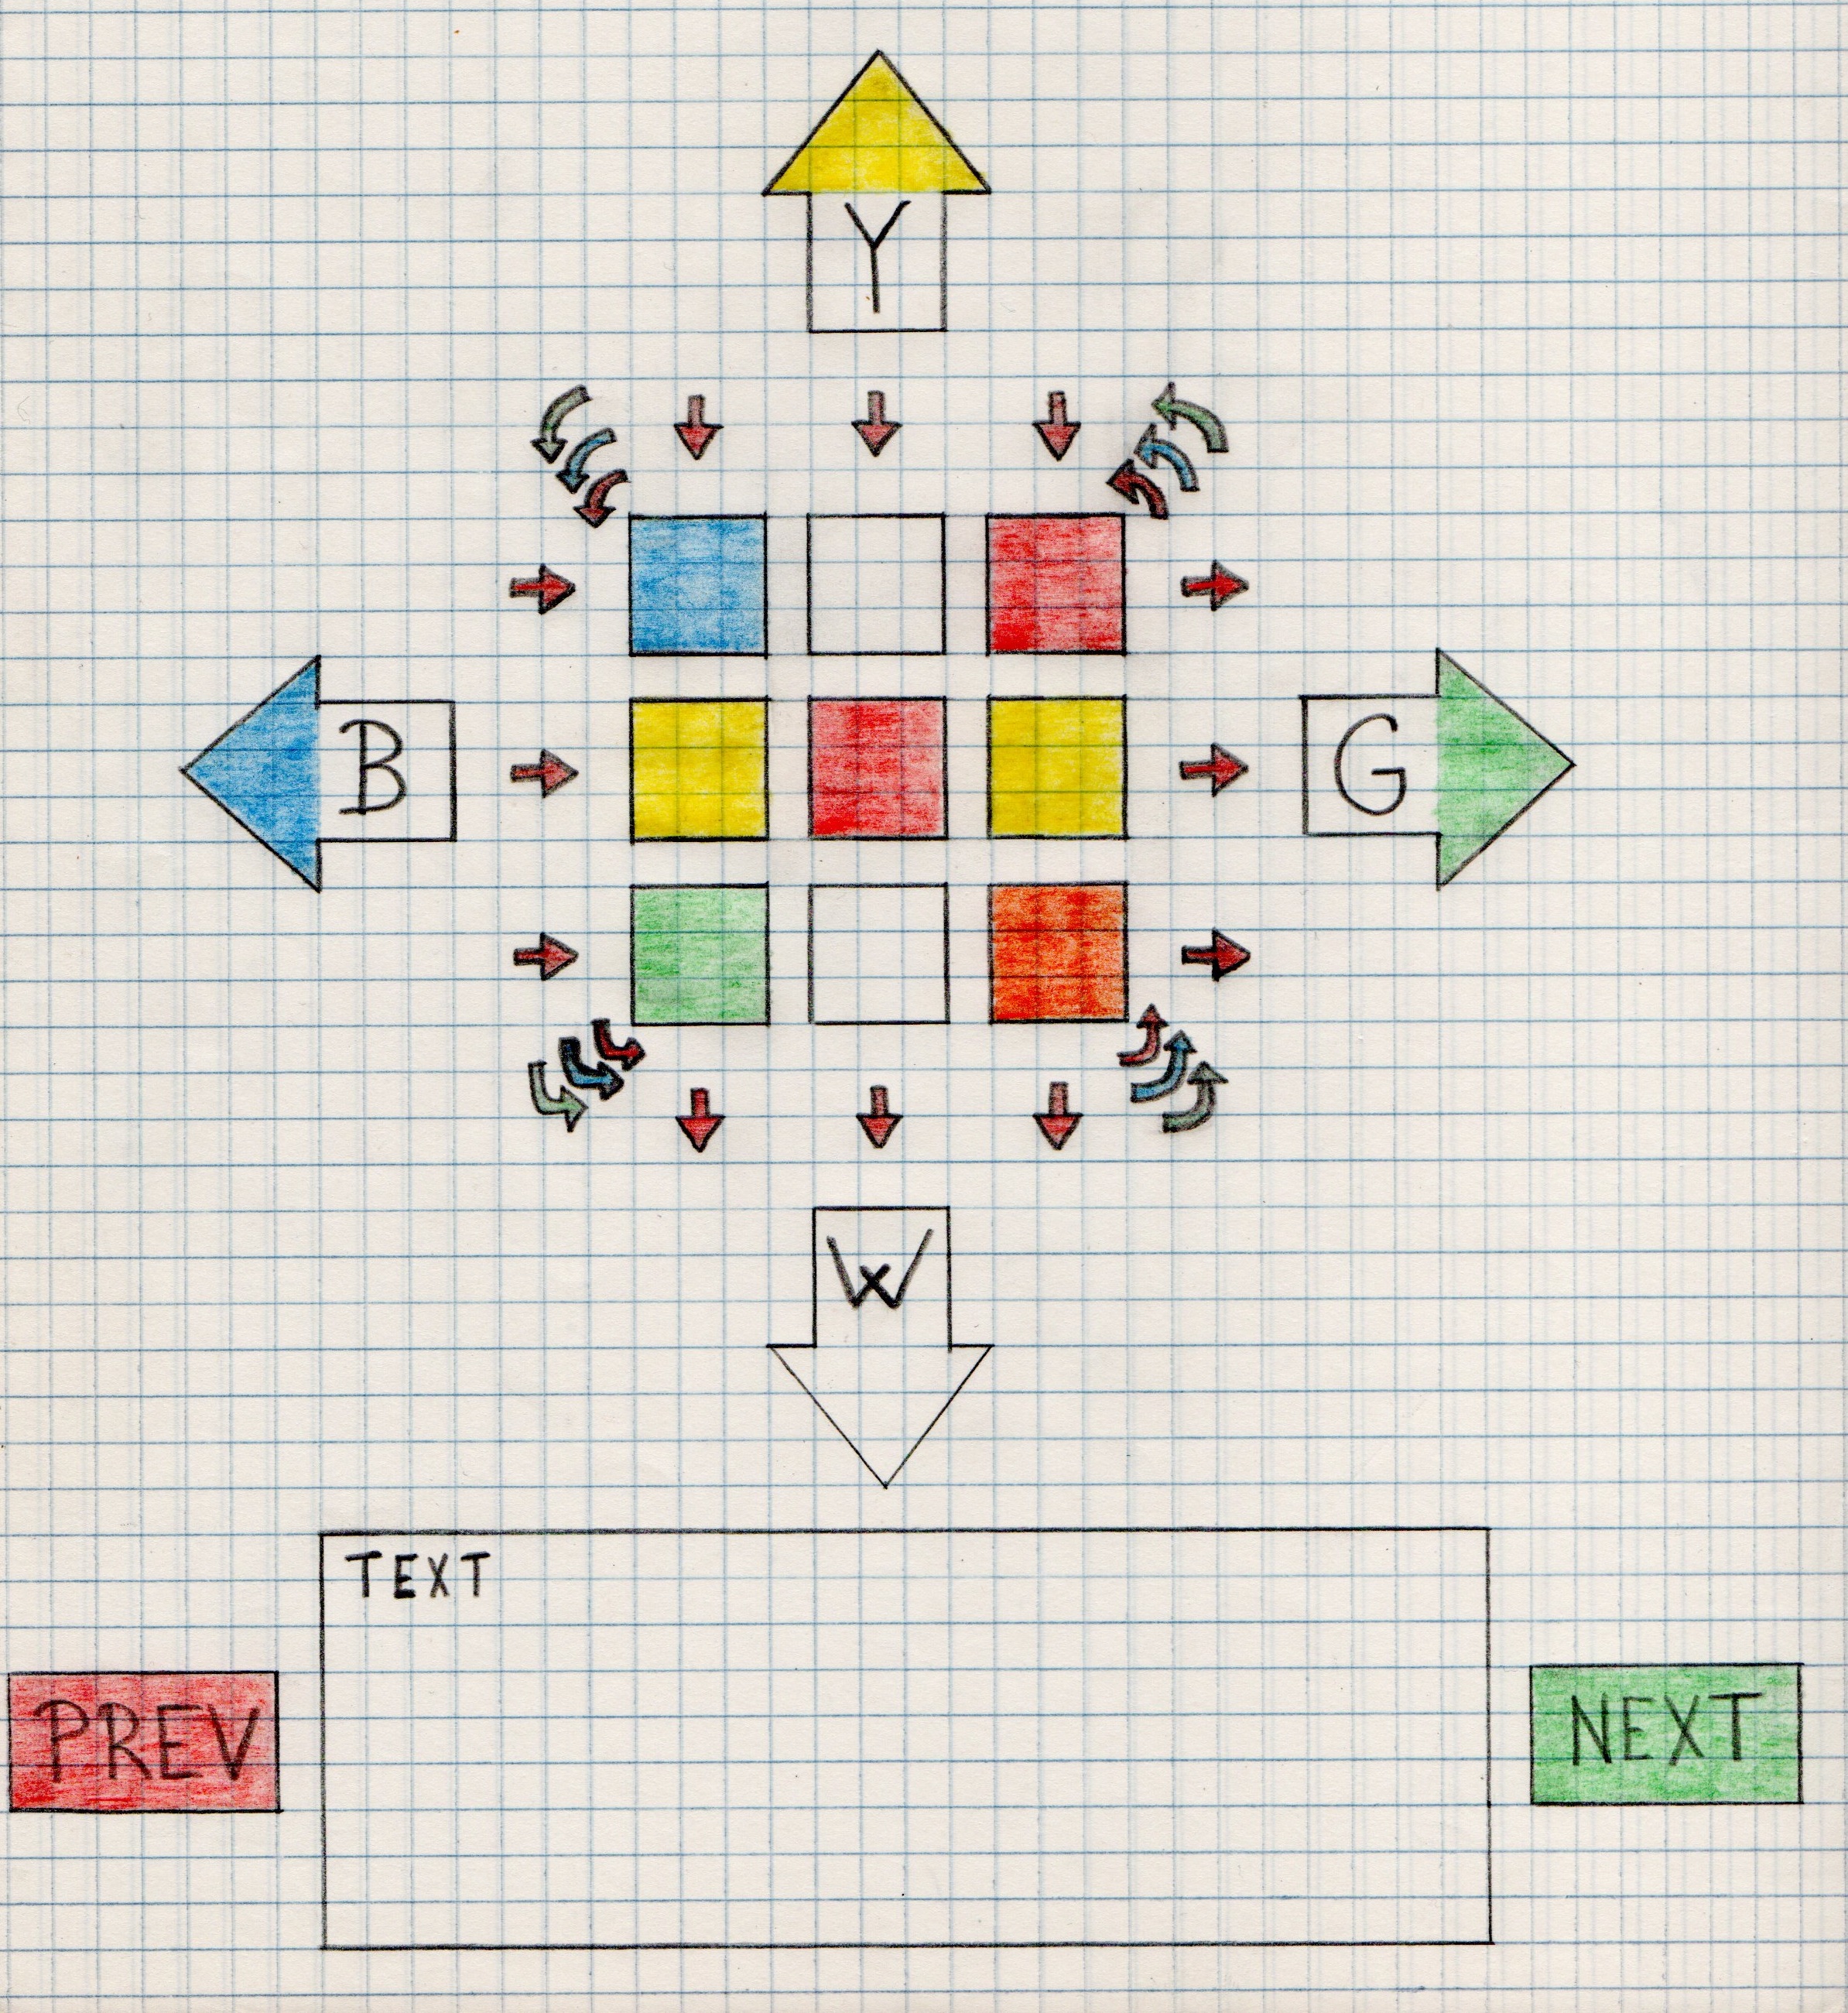 Y
B
G
W
TEXT
PREV
NEXT